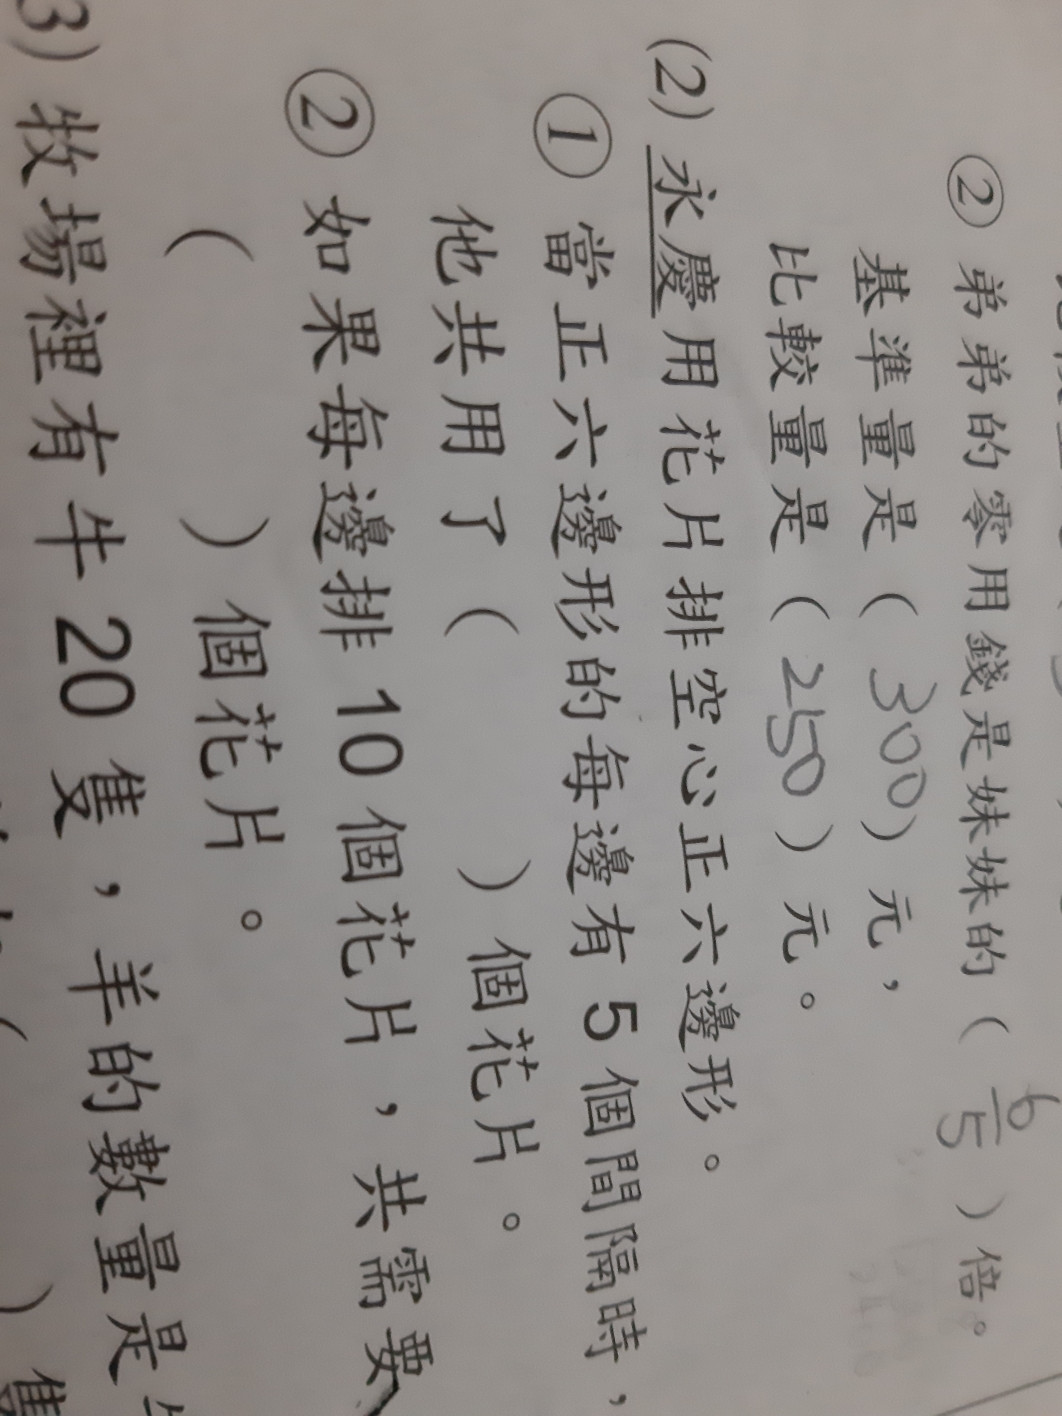 ② 弟弟的零用錢是妹妹的( 6/5 )倍。
基準量是( 300 )元，
比較量是( 250 )元。
(2) 永慶用花片排空心正六邊形。
① 當正六邊形的每邊有 5 個間隔時，
他共用了( )個花片。
② 如果每邊排 10 個花片，共需要
( )個花片。
3) 牧場裡有牛 20 隻，羊的數量是